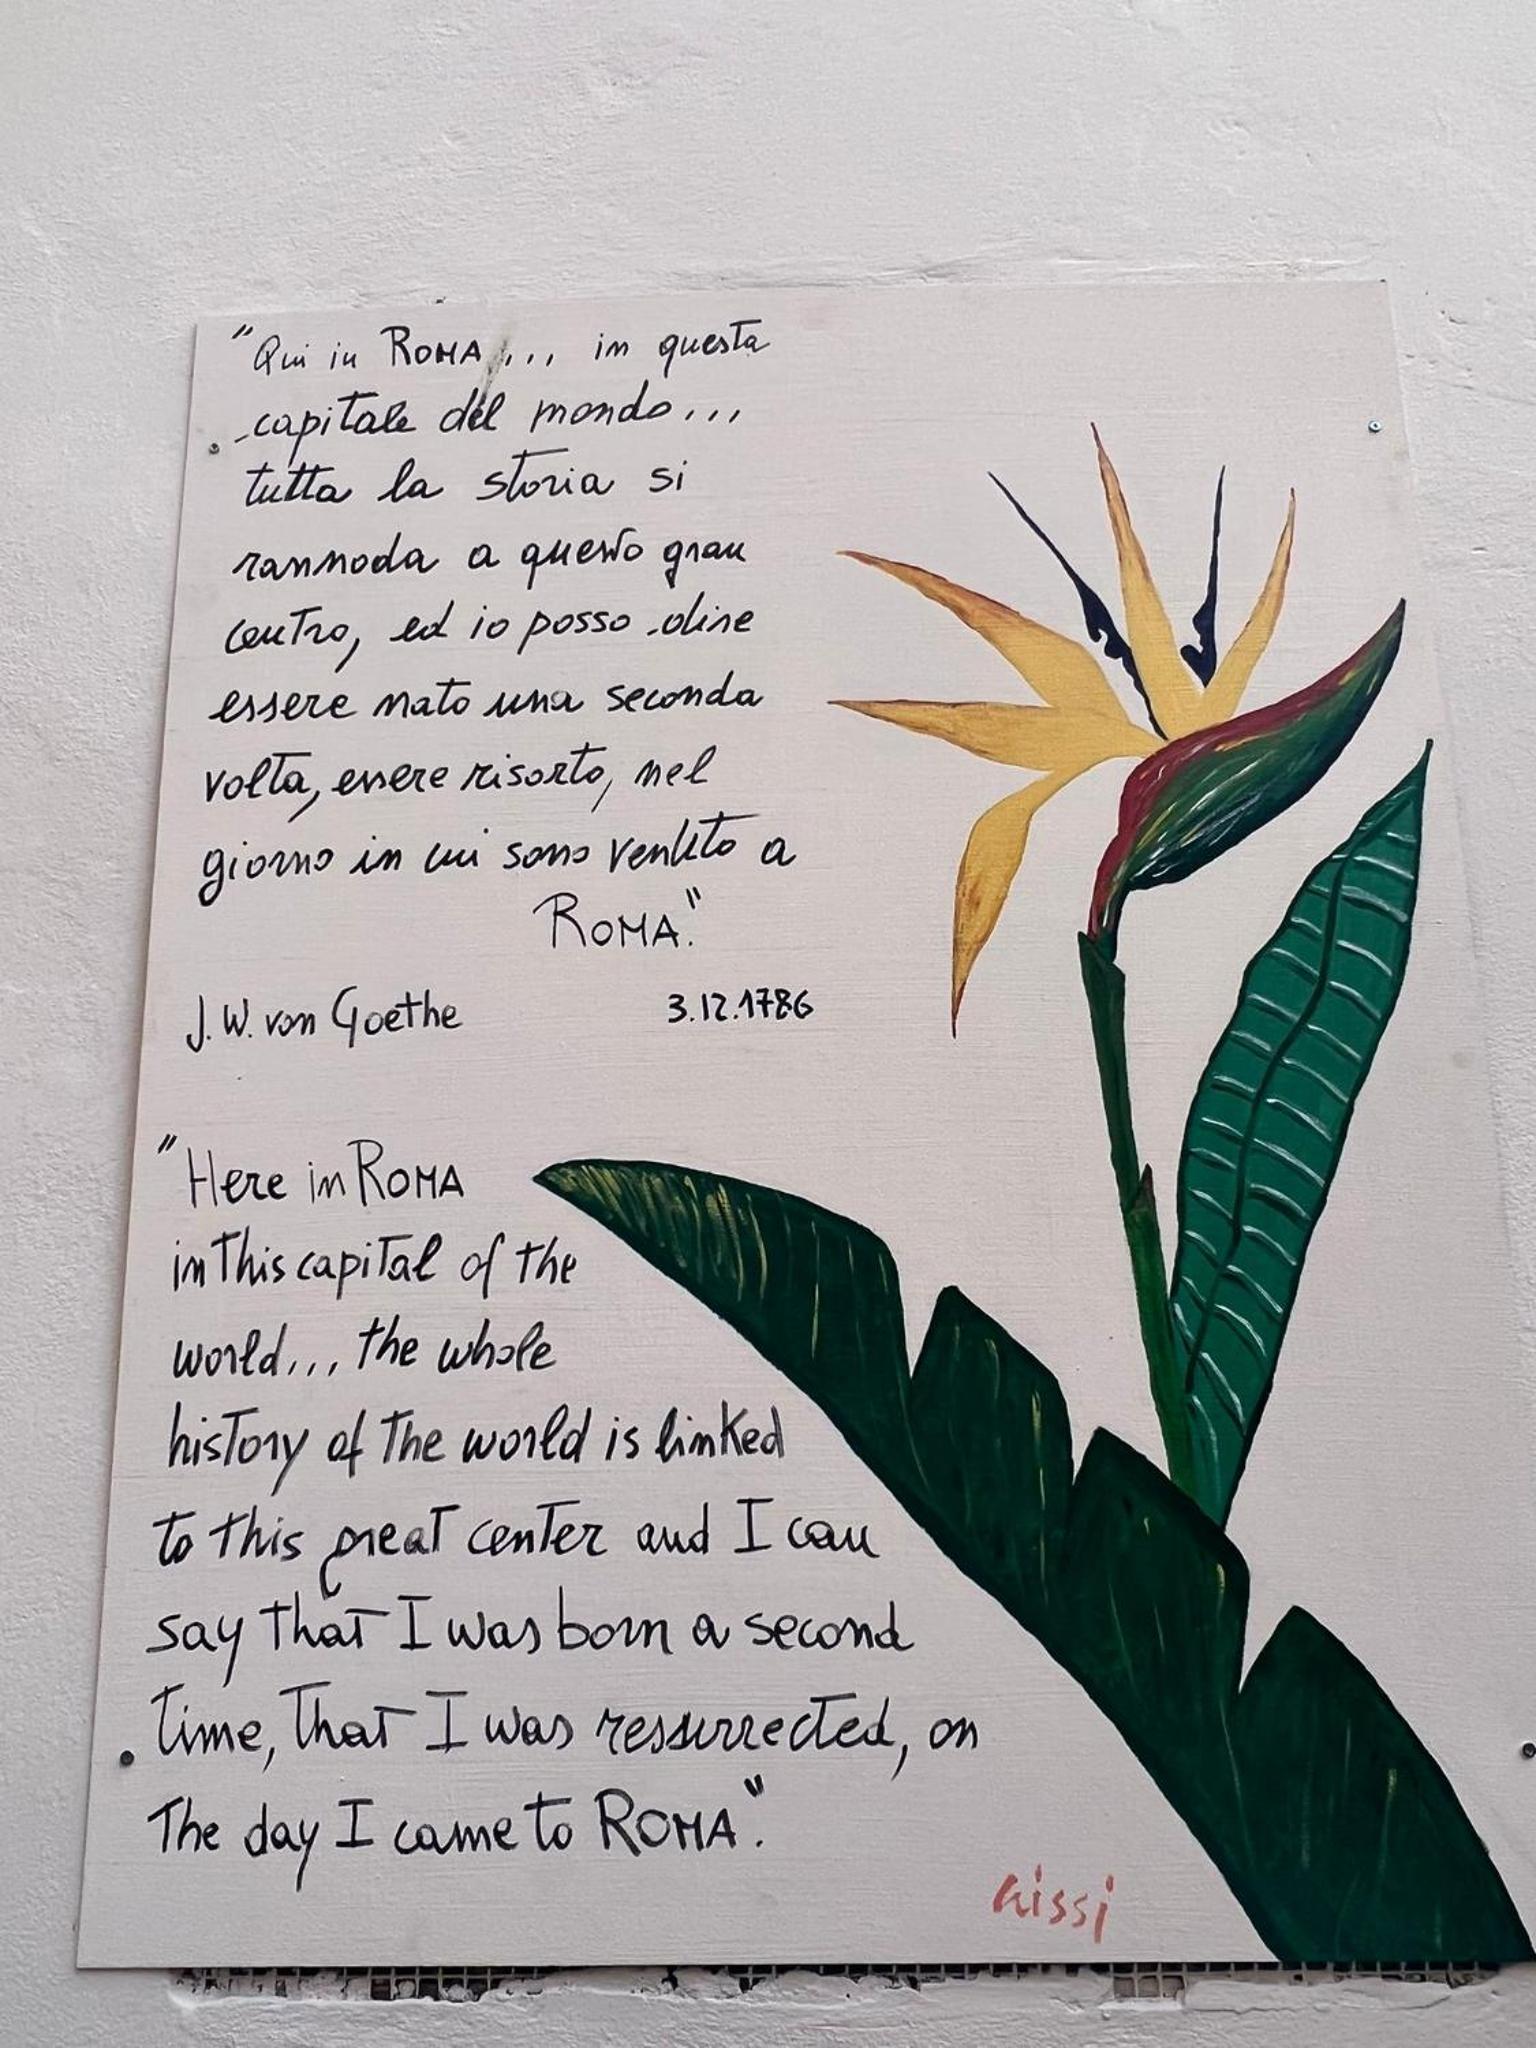 "Qui in ROMA... in questa
capitale del mondo...
tutta la storia si
rannoda a questo gran
centro, ed io posso dire
essere nato una seconda
volta, essere risorto, nel
giorno in cui sono venuto a
ROMA."
J. W. von Goethe 3.12.1786
"Here in ROMA
in this capital of the
world... the whole
history of the world is linked
to this great center and I can
say that I was born a second
time, that I was resurrected, on
The day I came to ROMA".